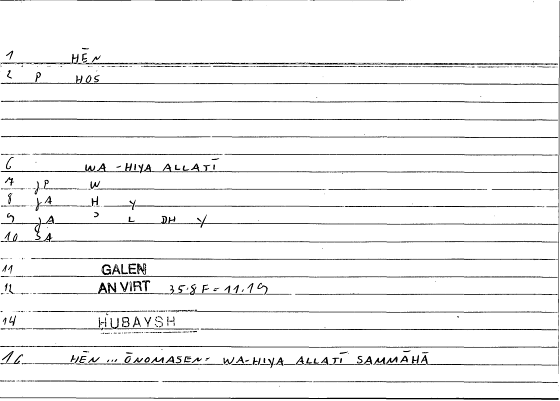 1 HĒN
2 P HOS
6 WA-HIYA ALLATĪ
7 jP W
8 jA H Y
9 jA ʾ L DH Y
10 SA
11 GALEN
12 AN VIRT 35.8 F = 11.19
14 HUBAYSH
16 HĒN ... ŌNOMASEN = WA-HIYA ALLATĪ SAMMĀHĀ